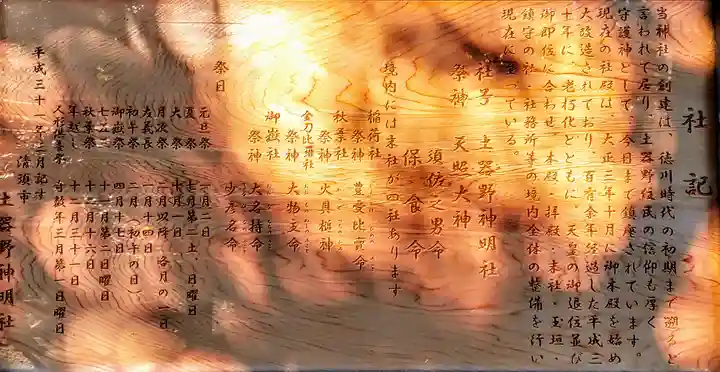 社記
当神社の創建は、徳川時代の初期まで遡ると
言われて居り、土器野住民の信仰も厚く
守護神として、今日まで鎮座されています。
現在の社殿は、大正三年十月に御本殿を始め
大改造されており、百有余年経過した平成三
十年に、老朽化とともに、天皇の御退位並び
御即位に合わせ、本殿・拝殿・末社・玉垣・
鎮守の社・社務所等の境内全体の整備を行い
現在に至っている。
社号 土器野神明社
祭神 天照大神
須佐之男命
保食命
境内には末社が四社あります
稲荷社 祭神 豊受比賣命
秋葉社 祭神 火具槌神
金刀比羅社 祭神 大物主命
御嶽社 祭神 大名持命
少彦名命
祭日
元旦祭 一月一日
夏祭 七月第二土・日曜日
大祭 十月一日
月次祭 二月以降 各月の一日
左義長 一月十四日
初午祭 二月(初午の日)
御嶽祭 四月十七日
七五三 十一月第二日曜日
秋葉祭 十二月十六日
年越し 十二月三十一日
人形供養祭 奇数年三月第一日曜日
平成三十一年三月記す
清須市
土器野神明社